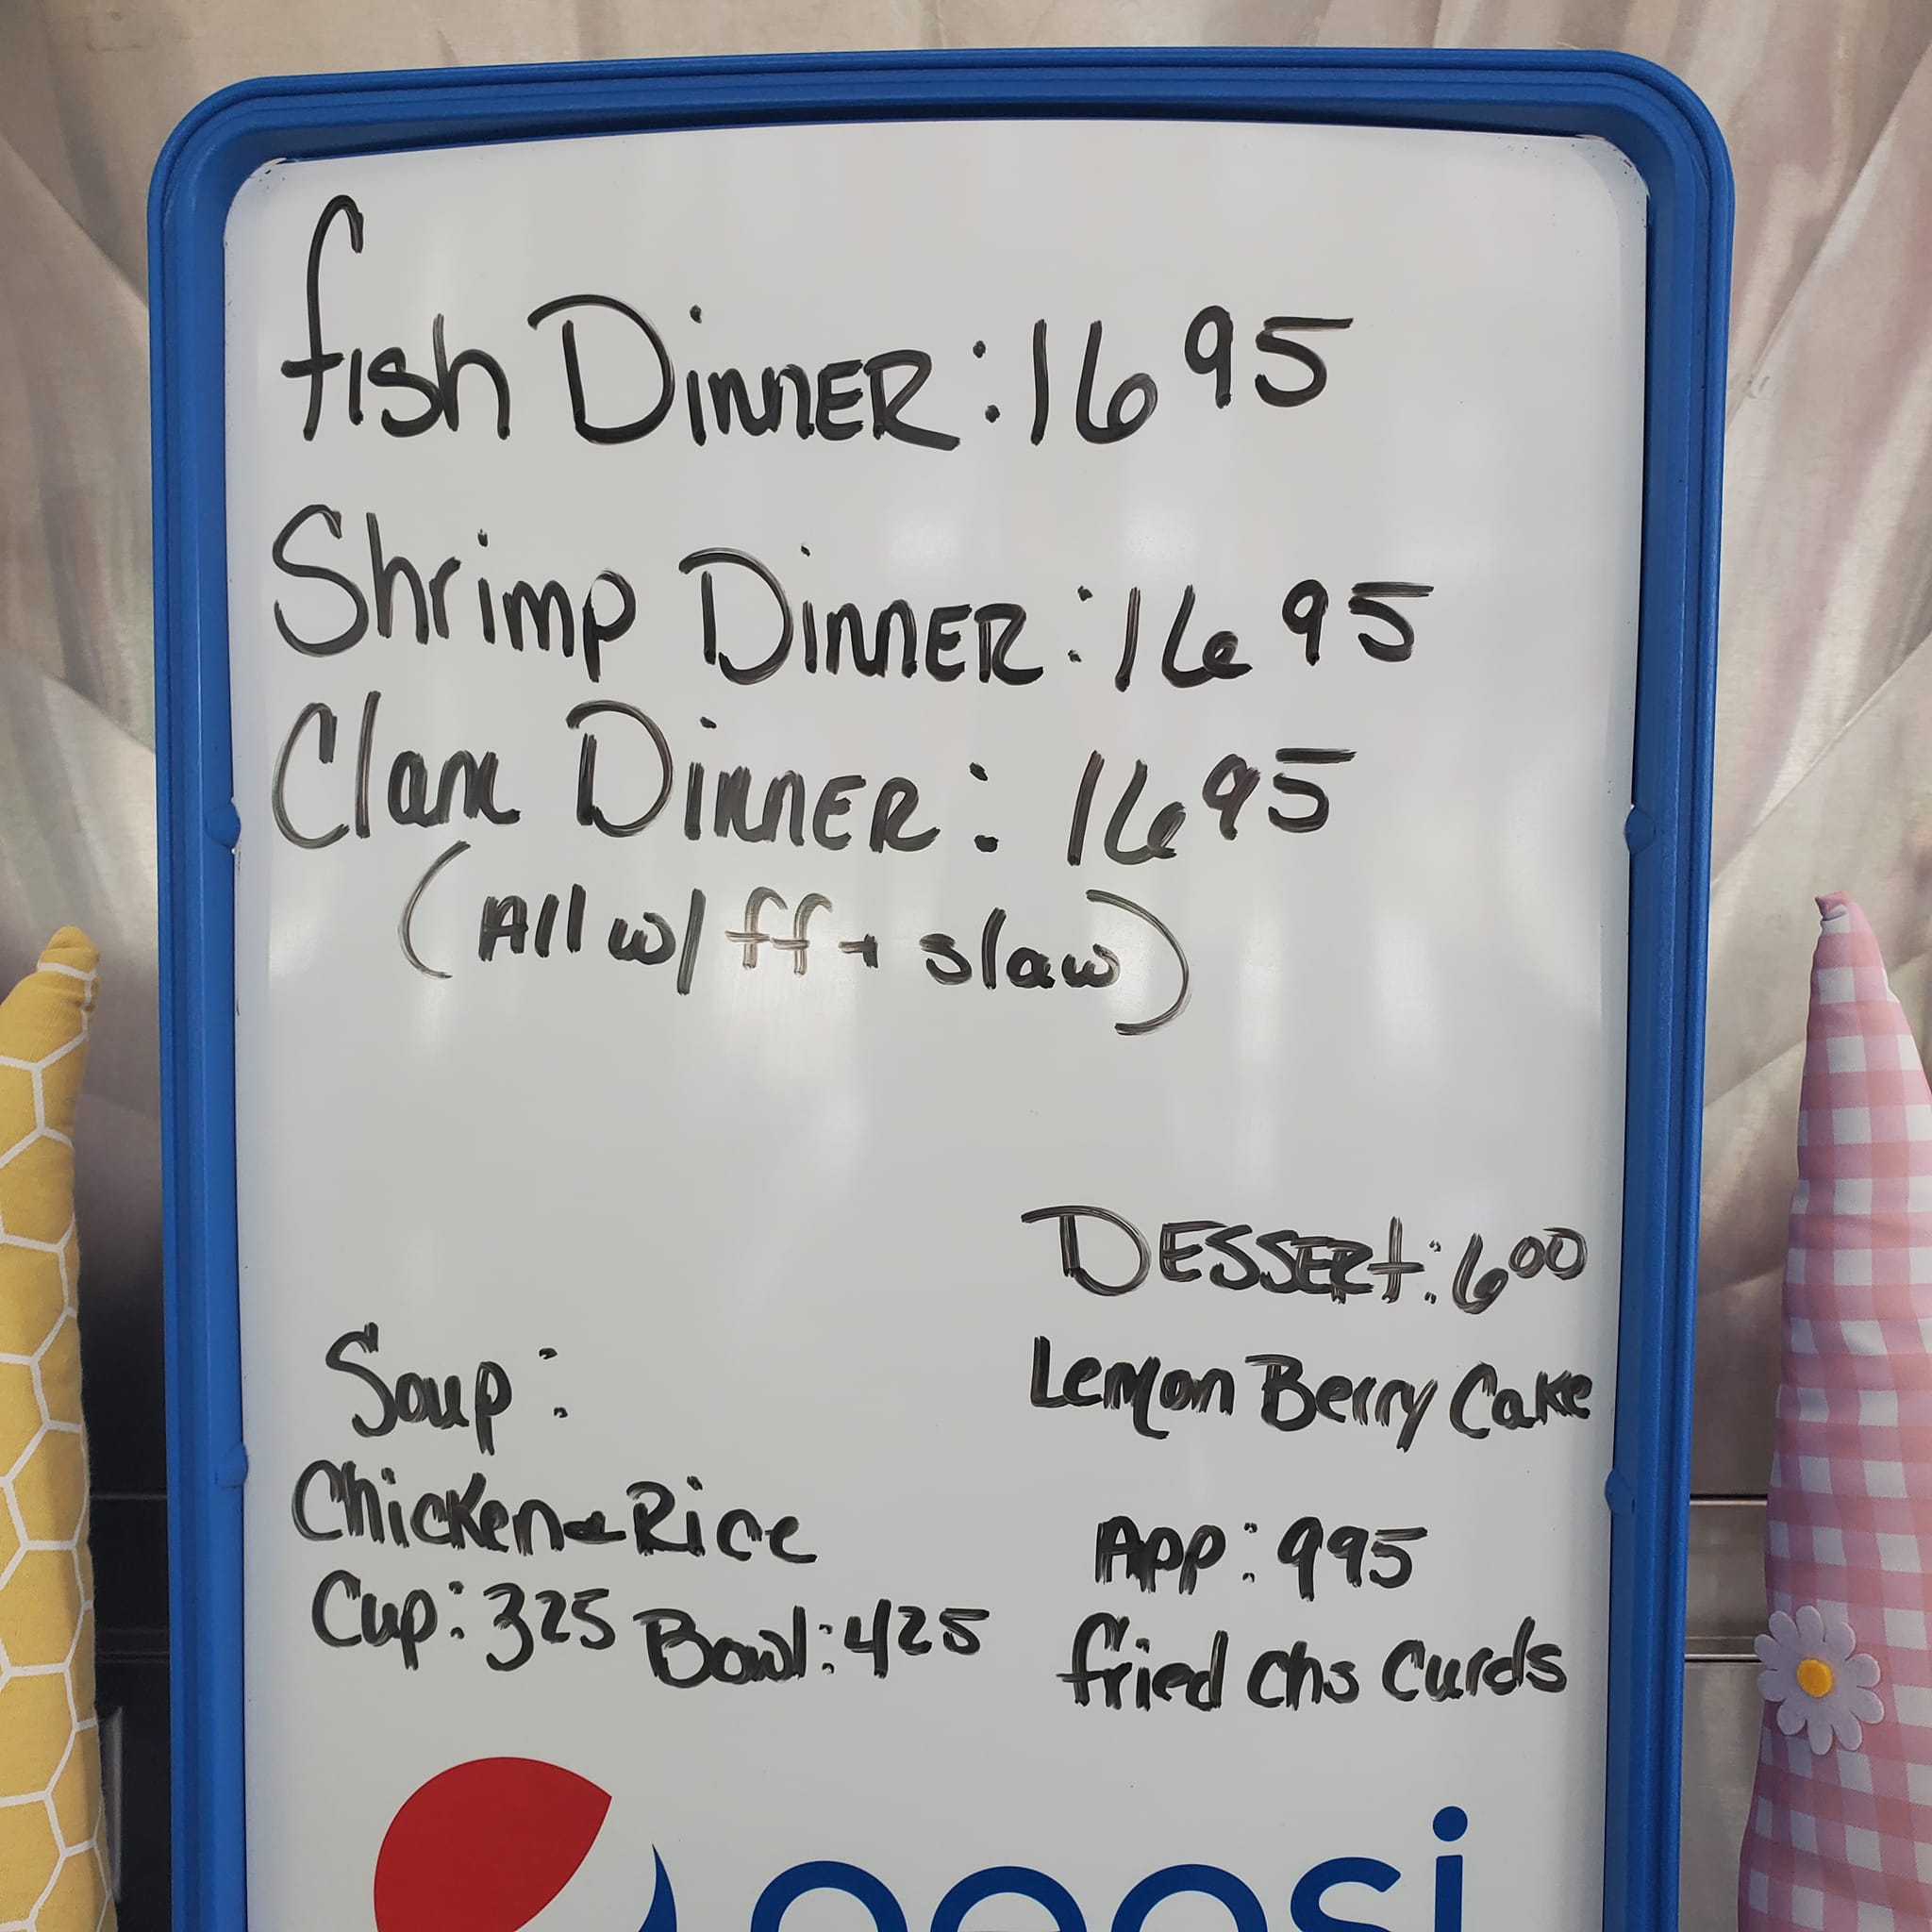 fish Dinner: 16 95
Shrimp Dinner: 16 95
Clam Dinner: 16 95
(All w/ ff + slaw)
Dessert: 6 00
Lemon Berry Cake
Soup:
Chicken & Rice
Cup: 325 Bowl: 425
App: 995
fried chs curds
pepsi